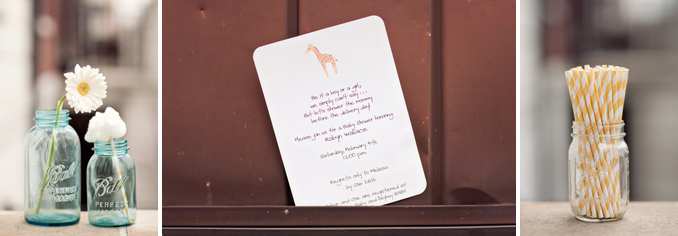 Ball
PERFECT
MASON
Ball
PERFECT
Be it a boy or a girl,
we simply can't say...
But let's shower the mommy
before the delivery day!
Please join us for a Baby Shower honoring
Robyn Wallace
Saturday, February 4th
12:00 pm
Regrets only to Melissa
by Jan 28th
and are registered at
Baby and BuyBuy BABY